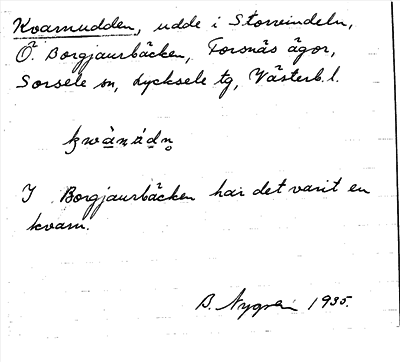 Kvarnudden, udde i Storvindeln,
Ö. Borgjaurbäcken, Forsnäs ägor,
Sorsele sn, Lycksele tg, Västerb. l.
kwànádn̥
I Borgjaurbäcken har det varit en
kvarn.
B. Nygren 1935.